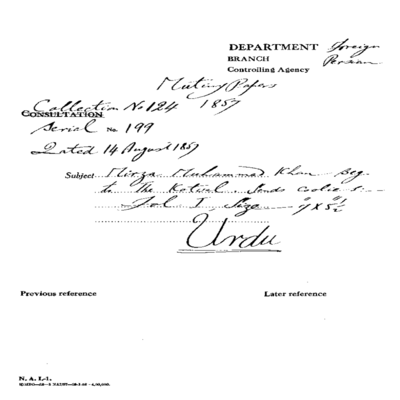 DEPARTMENT Foreign
BRANCH Persian
Controlling Agency
Mutiny Papers
Collection No 124 1857
CONSULTATION
Serial No 199
Dated 14 August 1857
Subject Mirza Muhammad Khan Beg
to The Kotwal. Sends coolies
Fol 1, Size 9" x 5½"
Urdu
Previous reference Later reference
N. A. I.-1.